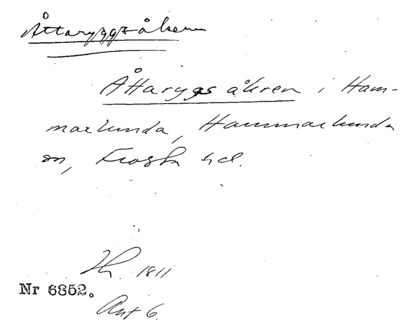 Åttaryggsåkern
Åttarygsåkren i Ham-
marlunda, Hammarlunda
sn, Frosta hd.
1811
Nr 6852.
Akt 6.